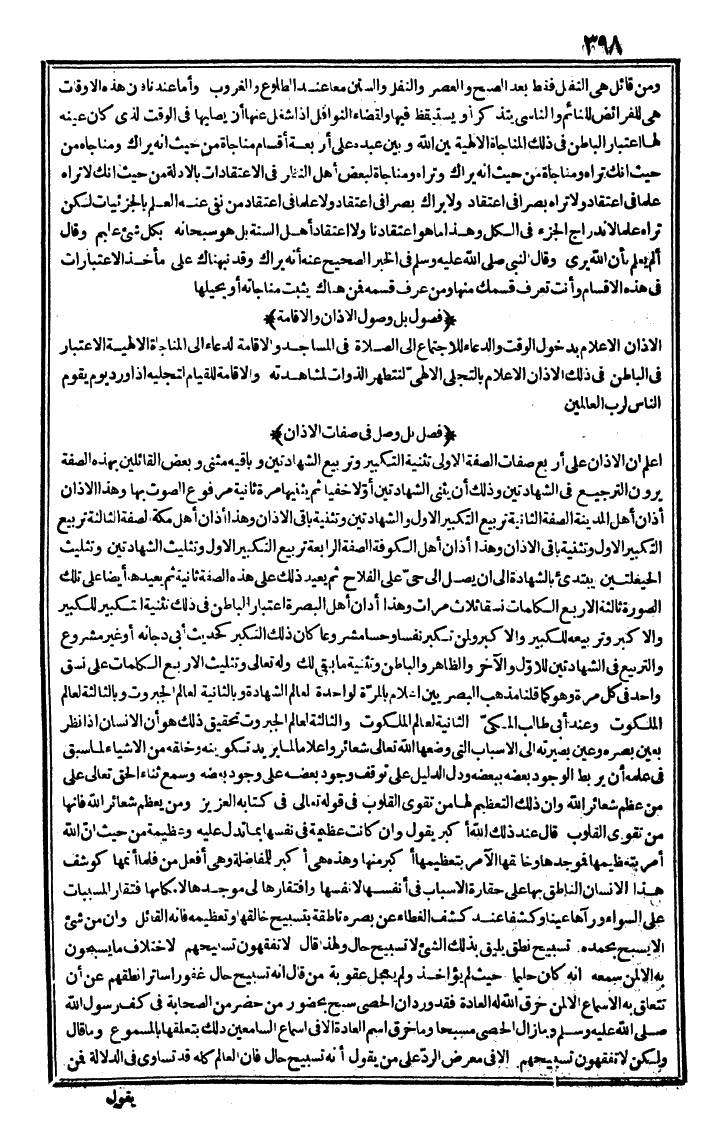 ٣٩٨
ومن قائل هى النفل فقط بعد الصبح والعصر والنفل والسنن معا عند الطلوع والغروب وأما عندنا دن هذه الاوقات
هى للفرائض للنائم والناسى يتذكر أو يستيقظ فيها ولقضاء النوافل اذا شغل عنها أن يصليها فى الوقت لذى كان عينه
لها اعتبار الباطن فى ذلك المناجاة الالهية بين الله وبين عبده على أربعة أقسام مناجاة من حيث انه يراك ومناجاه من
حيث انك تراه ومناجاة من حيث انه يراك وتراه ومناجاة لبعض أهل النظار فى الاعتقادات بالادلة من حيث انك لا تراه
علما فى اعتقاد ولا تراه بصرا فى اعتقاد ولا يراك بصرا فى اعتقاد ولا علما فى اعتقاد من نفى عنه العلم بالجزئيات لكن
تراه علما لاندراج الجزء فى الكل وهذا ما هو اعتقادنا ولا اعتقاد أهل السنة بل هو سبحانه بكل شئ عليم وقال
ألم يعلم بأن الله يرى وقال النبى صلى الله عليه وسلم فى الخبر الصحيح عنه أنه يراك وقد نبهناك على مأخذ الاعتبارات
فى هذه الاقسام وأنت تعرف قسمك منها ومن عرف قسمه فن هناك يثبت مناجاته أو يحيلها
﴿فصول بل وصول الاذان والاقامة﴾
الاذان الاعلام بدخول الوقت والدعاء للاجتماع الى الصلاة فى المساجد والاقامة لدعاء الى المناجاة الالهية الاعتبار
فى الباطن فى ذلك الاذان الاعلام بالتجلى الالهىّ لتتطهر الذوات لمشاهدته والاقامة للقيام لتجليه اذا ورد يوم يقوم
الناس لرب العالمين
﴿فصل بل وصل فى صفات الاذان﴾
اعلم ان الاذان على أربع صفات الصفة الاولى تثنية التكبير وتربيع الشهادتين وباقيه مثنى وبعض القائلين بهذه الصفة
يرون الترجيع فى الشهادتين وذلك أن يثنى الشهادتين أوّلا خفيا ثم يثنيها مرة ثانية مرفوع الصوت بها وهذا الاذان
أذان أهل المدينة الصفة الثانية تربيع التكبير الاول والشهادتين وتثنية باقى الاذان وهذا أذان أهل مكة لصفة الثالثة تربيع
التكبير الاول وتثنية باقى الاذان وهذا أذان أهل الكوفة الصفة الرابعة تربيع التكبير الاول وتثليث الشهادتين وتثليث
الحيعلتين يبتدئ بالشهادة الى ان يصل الى حىّ على الفلاح ثم يعيد ذلك على هذه الصفة ثانية ثم يعيدها أيضا على تلك
الصورة ثالثة الاربع الكلمات نسقا ثلاث مرات وهذا أذان أهل البصرة اعتبار الباطن فى ذلك تثنية التكبير للكبير
والاكبر وتربيعه للكبير والاكبر ولمن تكبر نفسا وحسا مشروعا كان ذلك التكبر كحديث أبى دجانه أو غير مشروع
والتربيع فى الشهادتين للاوّل والآخر والظاهر والباطن وتثنية ما بقى لك وله تعالى وتثليث الاربع الكلمات على نسق
واحد فى كل مرة وهو كما قلنا مذهب البصريين اعلام بالمرّة لواحدة لعالم الشهادة وبالثانية لعالم الجبروت وبالثالثة لعالم
الملكوت وعند أبى طالب المكىّ الثانية لعالم الملكوت والثالثة لعالم الجبروت تحقيق ذلك هو أن الانسان اذا نظر
بعين بصره وعين بصيرته الى الاسباب التى وضعها الله تعالى شعائر واعلاما لما يريد تكوينه وخلقه من الاشياء لما سبق
فى علمه أن يربط الوجود بعضه ببعضه ودل الدليل على توقف وجود بعضه على وجود بعضه وسمع ثناء الحق تعالى على
من عظم شعائر الله وان ذلك التعظيم لها من تقوى القلوب فى قوله تعالى فى كتابه العزيز ومن يعظم شعائر الله فانها
من تقوى القلوب قال عند ذلك الله أكبر يقول وان كانت عظيمة فى نفسها بما تدل عليه وعظيمة من حيث انّ الله
أمر بتعظيمها فوجدها وخالقها الآمر بتعظيمها أكبر منها وهذه هى أكبر للمفاضلة وهى أفعل من فلما أتمها كوشف
هذا الانسان الناطق بها على حقارة الاسباب فى أنفسها لانفسها وافتقارها الى موجدها لامكانها افتقار المسببات
على السواء ورآها عينا وكشفا عند كشف الغطاء عن بصره ناطقة بتسبيح خالقها وتعظيمه فانه القائل وان من شئ
الا يسبح بحمده تسبيح نطق يليق بذلك الشئ لا تسبيح حال ولهذا قال لا تفقهون تسبيحهم لاختلاف ما يسبحون
به الا لمن سمعه انه كان حليما حيث لم يؤاخذ ولم يعجل عقوبة من قال انه تسبيح حال غفورا ساترا نطقهم عن أن
تتعلق به الاسماع الا لمن خرق الله له العادة فقد ورد ان الحصى سبح بحضور من حضر من الصحابة فى كف رسول الله
صلى الله عليه وسلم وما زال الحصى مسبحا وما خرق اسم العادة الا فى اسماع السامعين ذلك بتعلقها بالمسموع وما قال
ولكن لا تفقهون تسبيحهم الا فى معرض الردّ على من يقول أنه تسبيح حال فان العالم كله قد تساوى فى الدلالة فن
يقول